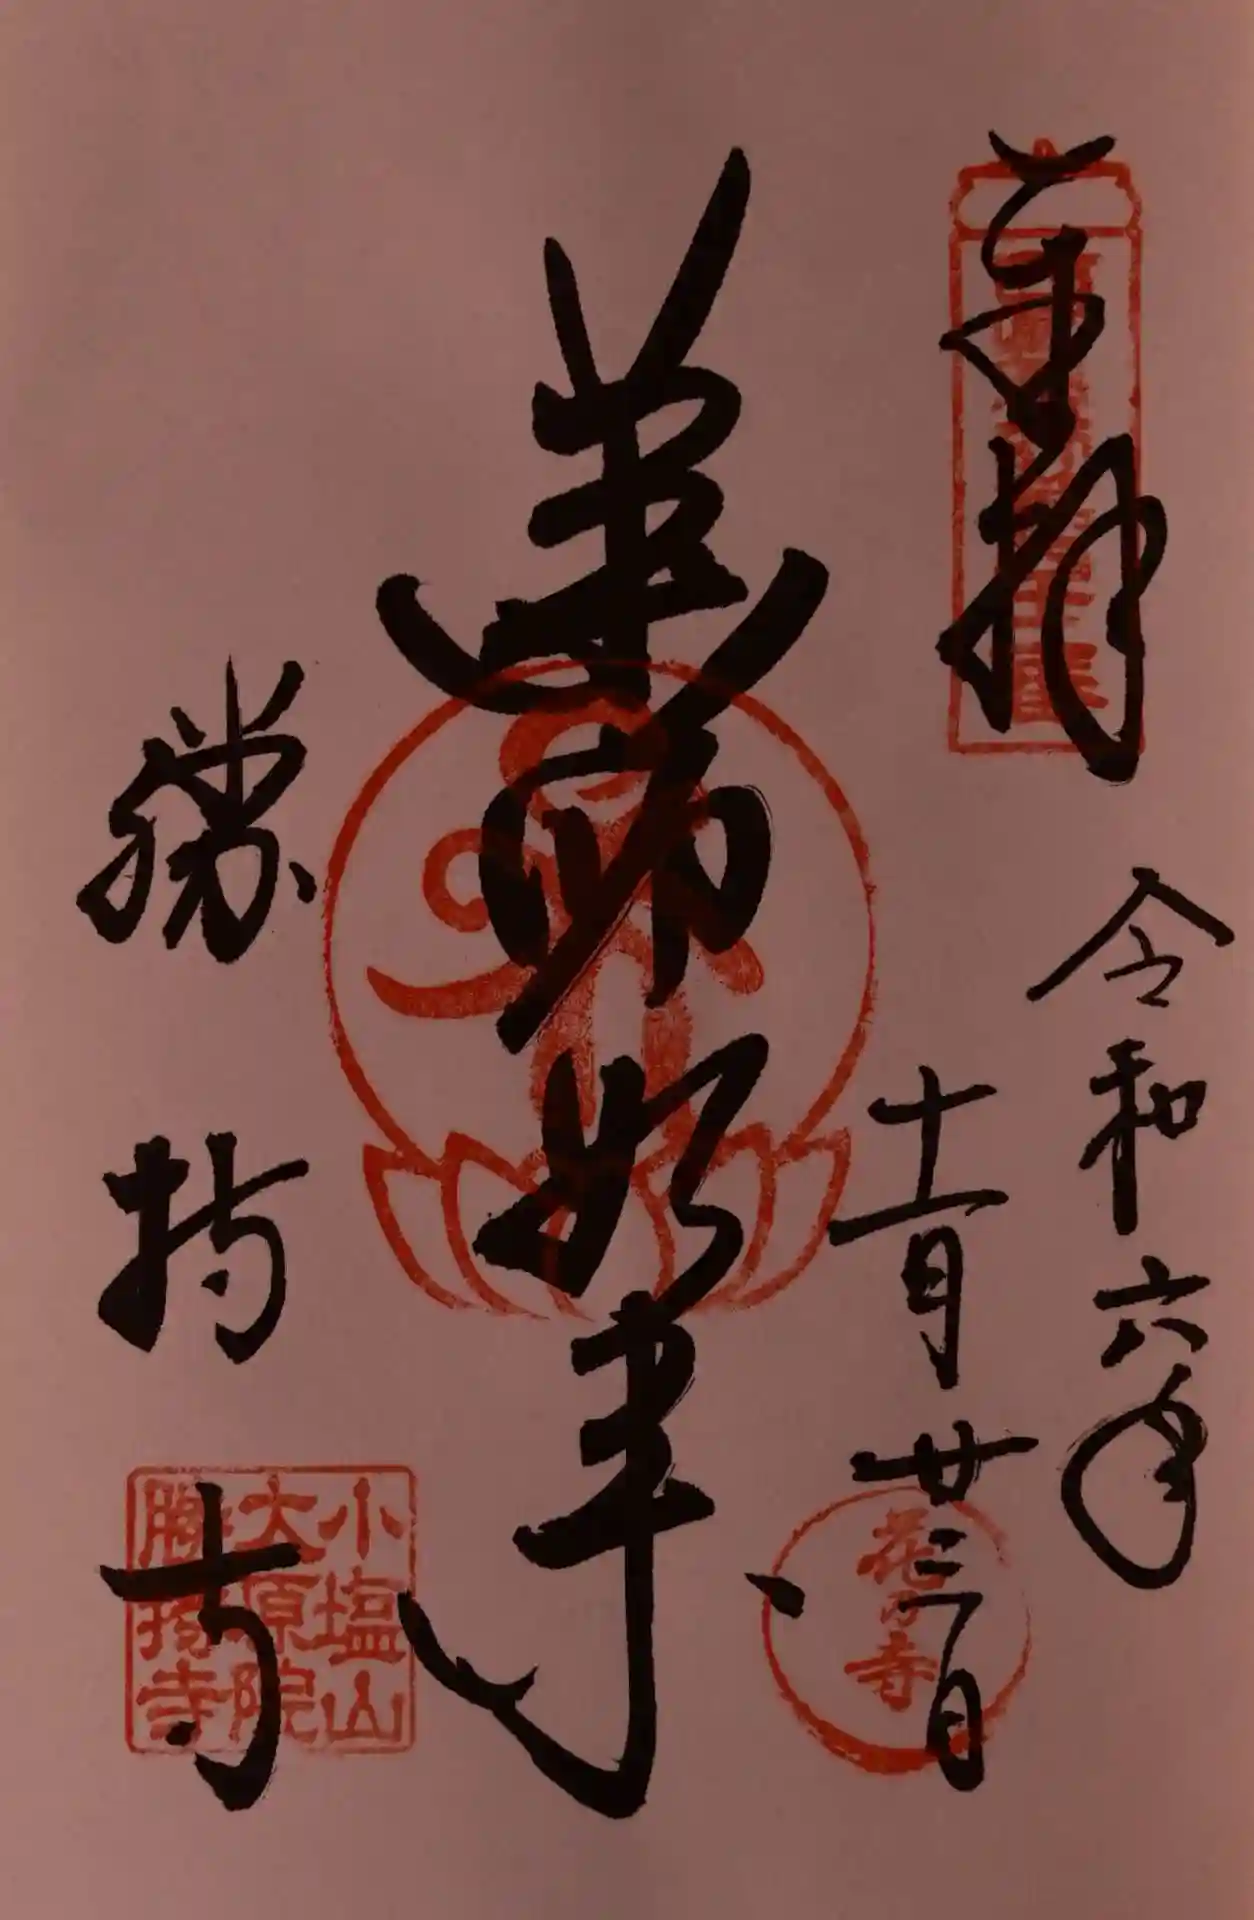 奉拝
令和六年
十一月廿三日
花の寺
薬師如来
勝持寺
小塩山
大原院
勝持寺